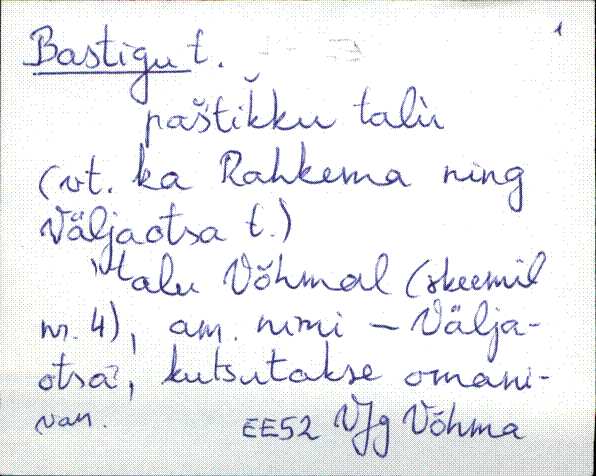 Bastigu t. 1
paštikku talu
(vt. ka Rahkema ning
Väljaotsa t.)
talu Võhmal (skeemil
nr. 4), am. nimi – Välja-
otsa, kutsutakse omani-
EE52 VJg Võhma